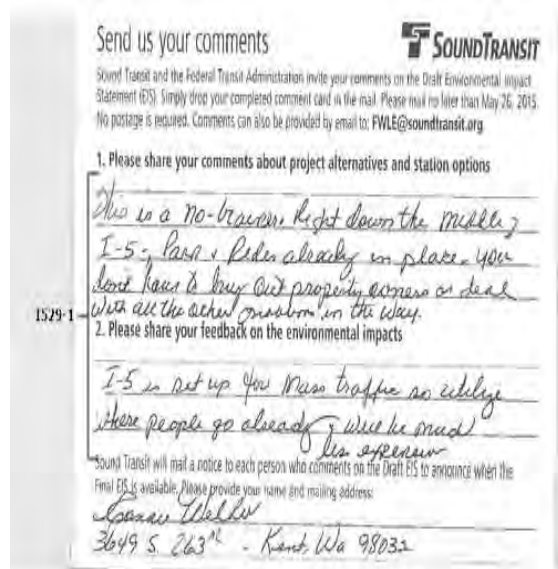 Send us your comments
SOUNDTRANSIT
Sound Transit and the Federal Transit Administration invite your comments on the Draft Environmental Impact
Statement (EIS). Simply drop your completed comment card in the mail. Please mail no later than May 26, 2015.
No postage is required. Comments can also be provided by email to: FWLE@soundtransit.org
1. Please share your comments about project alternatives and station options
This is a no-brainer. Right down the middle of
I-5 - Park & Rides already in place. You
dont have to buy out property owners or deal
I529-1
With all the other problems in the way.
2. Please share your feedback on the environmental impacts
I-5 is set up for mass traffic so utilize
where people go already will be much
less expensive
Sound Transit will mail a notice to each person who comments on the Draft EIS to announce when the
Final EIS is available. Please provide your name and mailing address:
3649 S. 263rd - Kent, Wa 98032